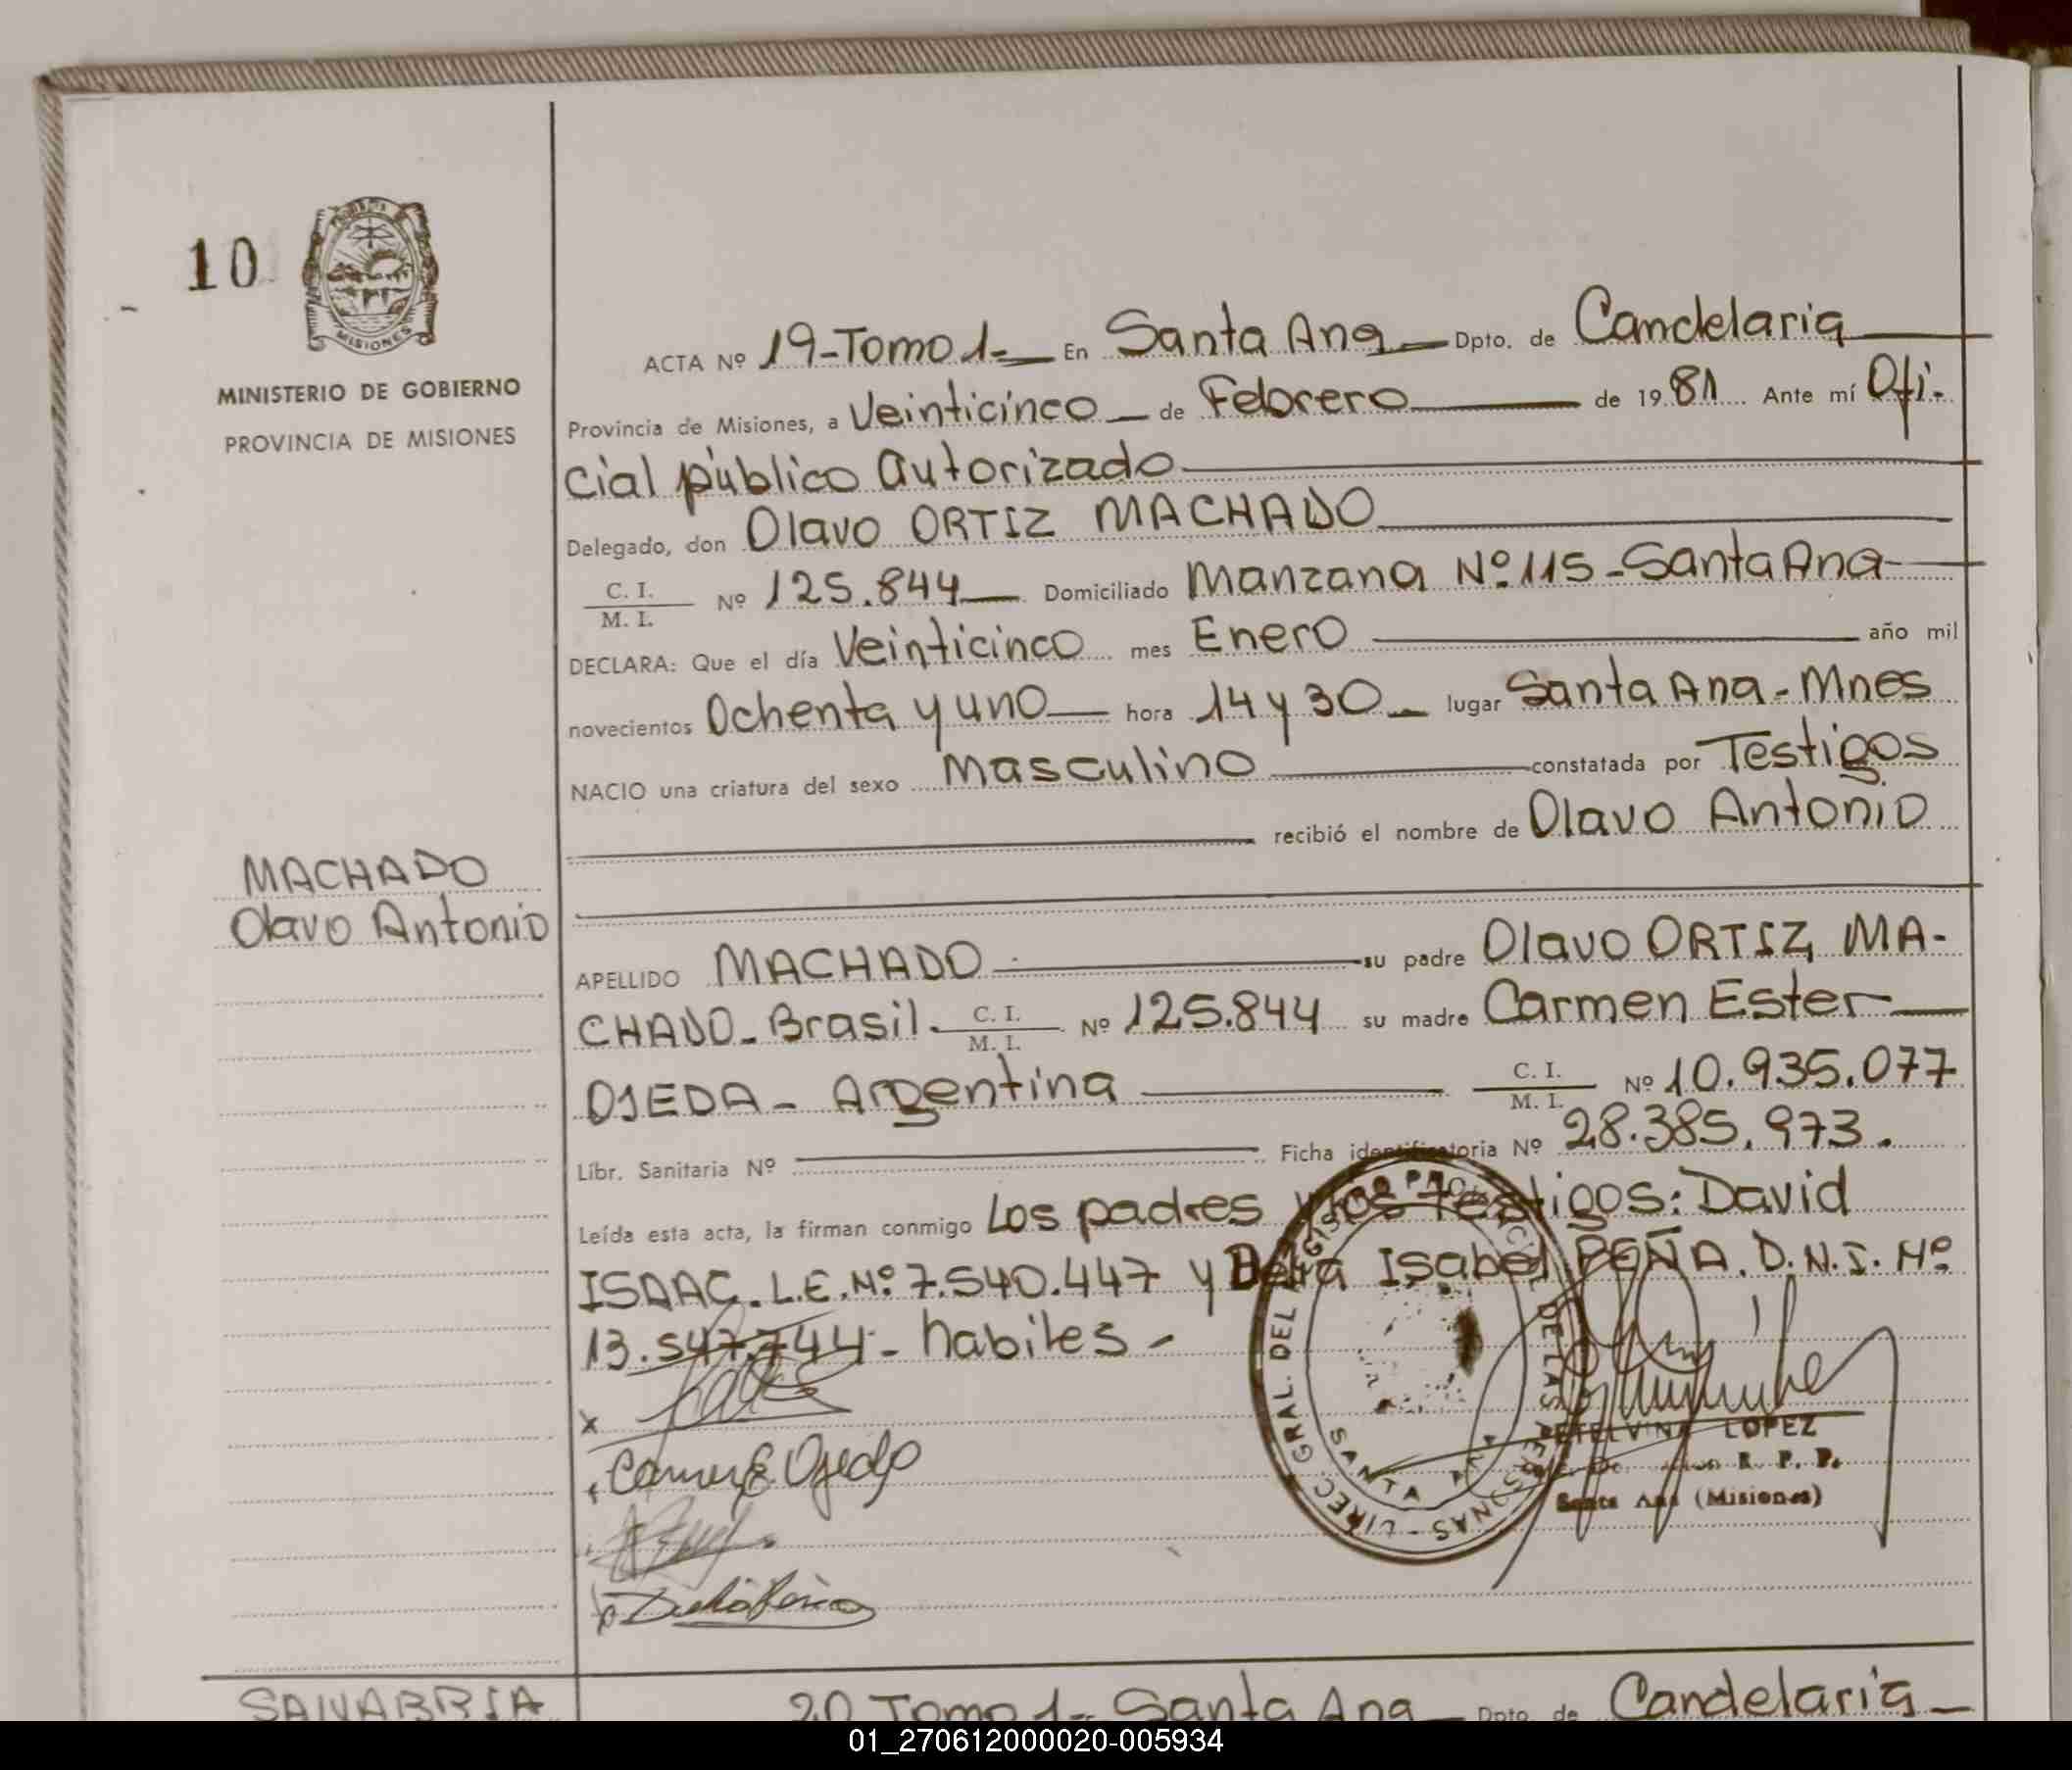 10
MISIONES
MINISTERIO DE GOBIERNO
PROVINCIA DE MISIONES
ACTA Nº 19-Tomo 1- En Santa Ana Dpto. de Candelaria
Provincia de Misiones, a Veinticinco de Febrero de 1981 Ante mí Ofi-
cial público Autorizado
Delegado, don Olavo ORTIZ MACHADO
C. I.
M. I. Nº 125.844 Domiciliado Manzana Nº 115-Santa Ana
DECLARA: Que el día Veinticinco mes Enero año mil
novecientos Ochenta y uno hora 14 y 30 lugar Santa Ana-Mnes
NACIO una criatura del sexo Masculino constatada por Testigos
recibió el nombre de Olavo Antonio
MACHADO
Olavo Antonio
APELLIDO MACHADO su padre Olavo ORTIZ MA-
CHADO-Brasil. C. I. M. I. Nº 125.844 su madre Carmen Ester
OJEDA- Argentina C. I. M. I. Nº 10.935.077
Libr. Sanitaria Nº Ficha identificatoria Nº 28.385.973.
Leída esta acta, la firman conmigo Los padres y los Testigos: David
ISAAC. L.E.Nº 7.540.447 y Delia Isabel PEÑA. D.N.I. Nº
13.547.744- habiles-
x
Carmen E Ojeda
Delia Peña
DIREC. GRAL. DEL REGISTRO PROVINCIAL DE LAS PERSONAS
SANTA ANA
ETELVINA LOPEZ
R. P. P.
Santa Ana (Misiones)
SANABRIA
20 Tomo 1- Santa Ana Dpto. de Candelaria
01_270612000020-005934